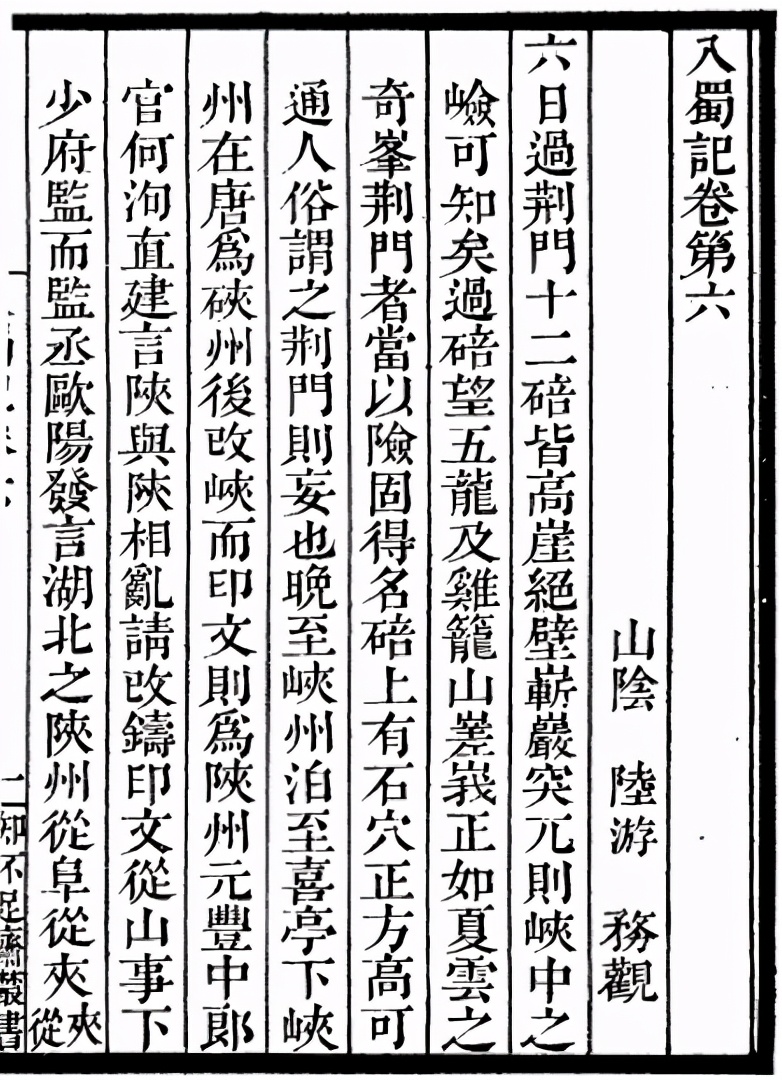 入蜀記卷第六
山陰　陸游　務觀
六日過荆門十二碚皆高崖絕壁嶄巖突兀則峽中之
嶮可知矣過碚望五龍及雞籠山嵳峩正如夏雲之
奇峯荆門者當以險固得名碚上有石穴正方高可
通人俗謂之荆門則妄也晚至峽州泊至喜亭下峽
州在唐爲硤州後改峽而印文則爲陝州元豐中郎
官何洵直建言陝與陜相亂請改鑄印文從山事下
少府監而監丞歐陽發言湖北之陝州從阜從夾夾從
二知不足齋叢書